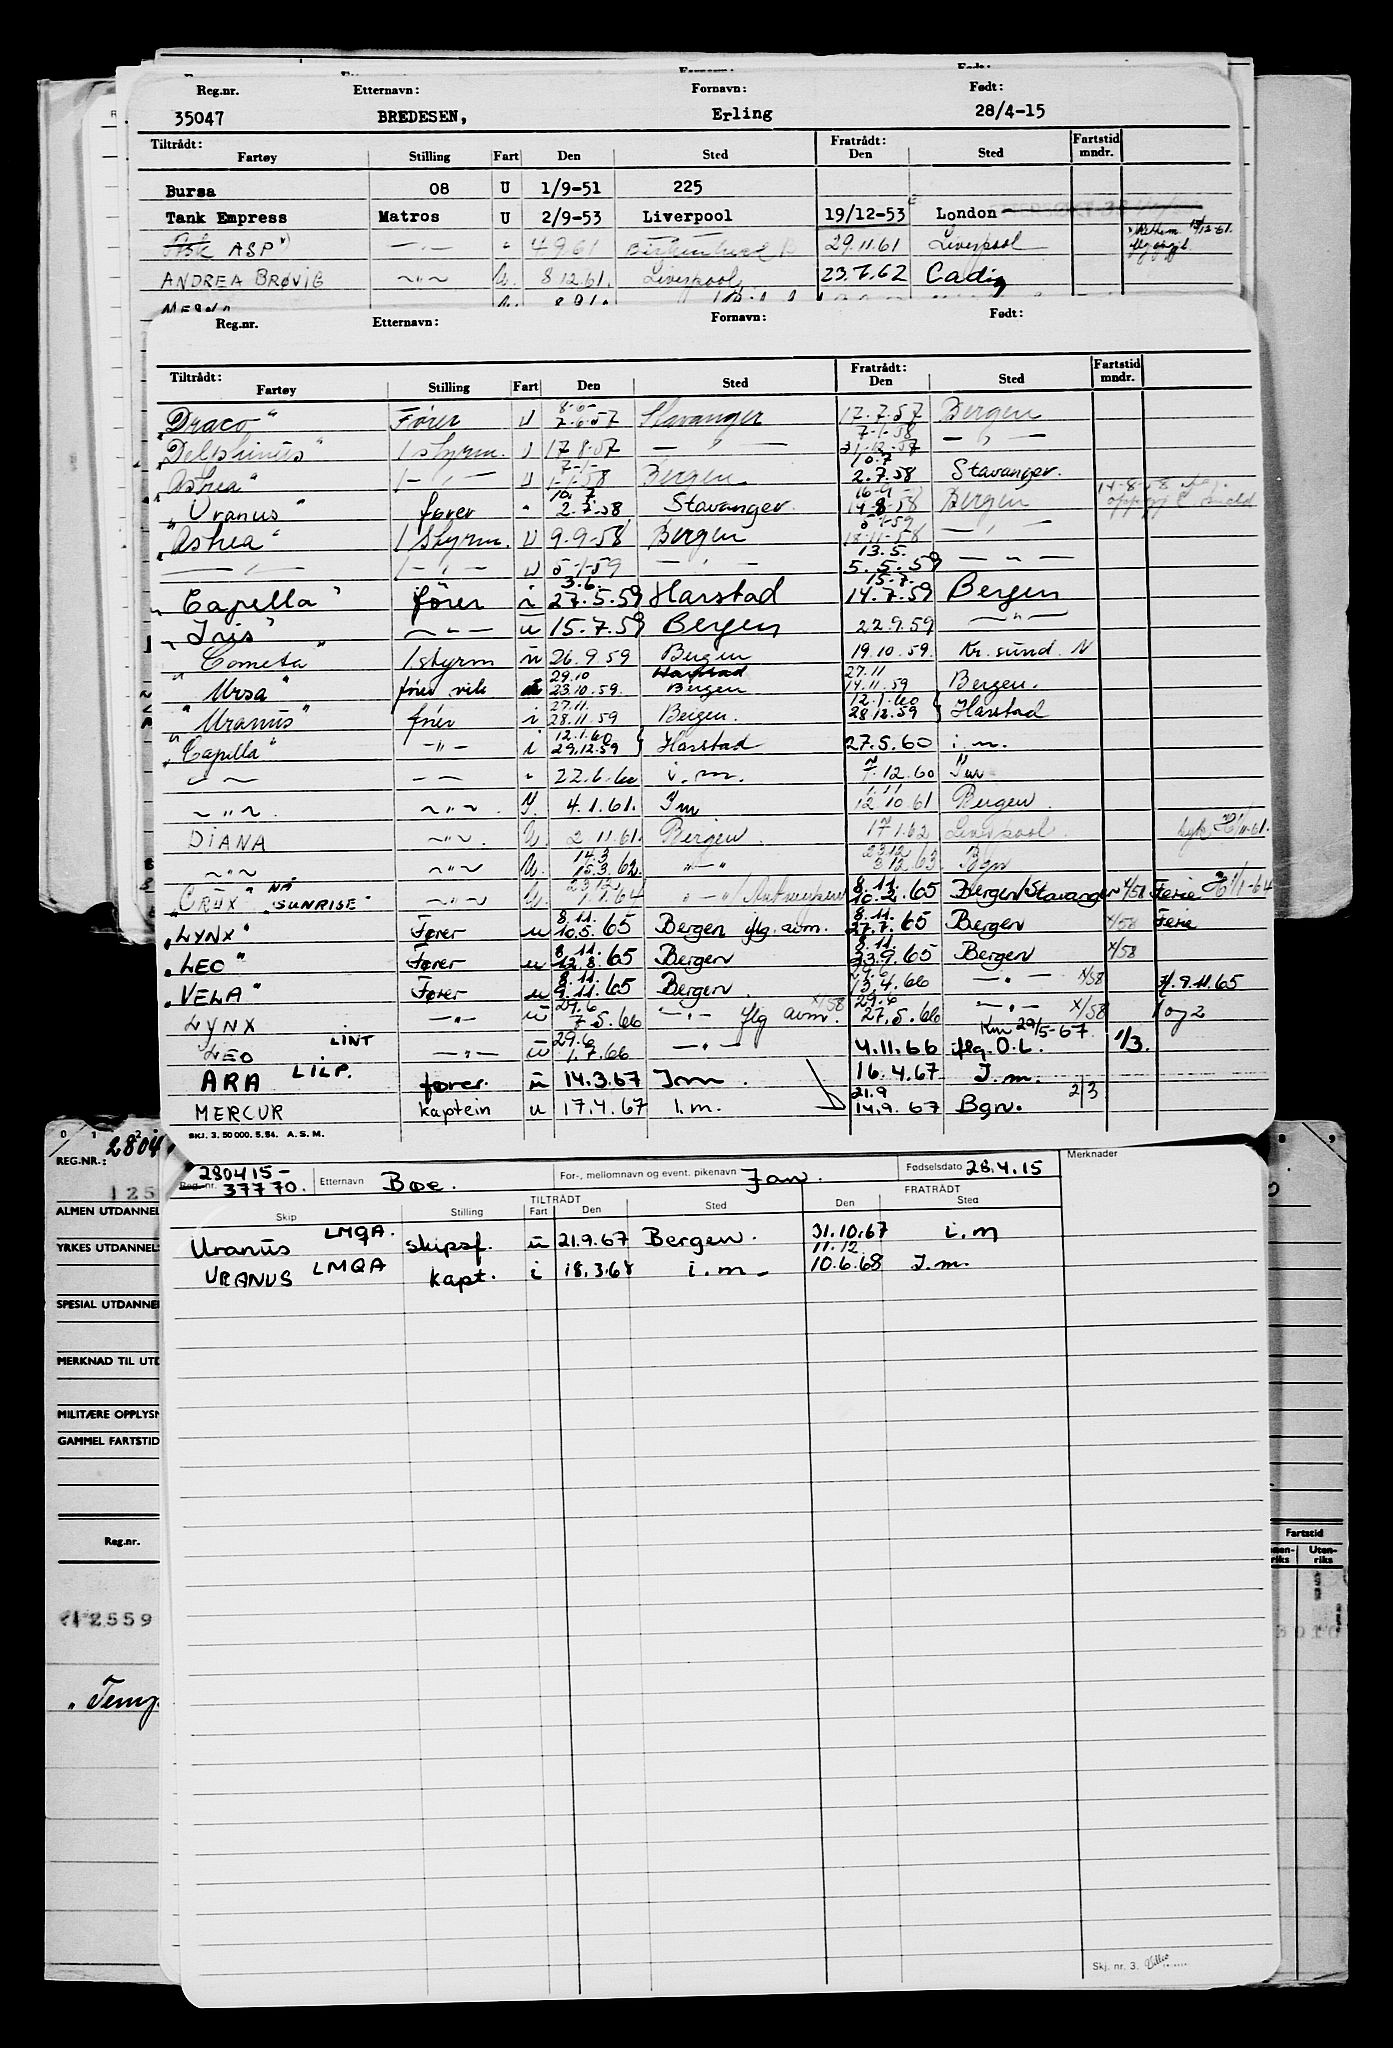 Reg.nr. Etternavn: Fornavn: Født:
35047 BREDESEN, Erling 28/4-15
Tiltrådt: Fratrådt: Fartstid
Fartøy Stilling Fart Den Sted Den Sted mndr.
Bursa 08 U 1/9-51 225
Tank Empress Matros U 2/9-53 Liverpool 19/12-53 London
ASP 4.9.61 29.11.61 Liverpool
ANDREA BRØVIG U. 8.12.61. Liverpool 23.7.62 Cadiz
Reg.nr. Etternavn: Fornavn: Født:
Tiltrådt: Fratrådt: Fartstid
Fartøy Stilling Fart Den Sted Den Sted mndr.
"Draco" Fører U 7.6.57 Stavanger 17.7.57 Bergen
7-1-58
"Delphinus" 1 styrm. U 17.8.57 — " — 31.12.57 — " —
7-1- 10.7
"Astrea" 1 — " — U 1-1-58 Bergen 2.7.58 Stavanger.
10.7. 16-9
"Uranus" fører " 2.7.58 Stavanger 14-8-58 Bergen
5-1-59
"Astrea" 1 styrm. U 9-9-58 Bergen 18-11-58 — " —
13.5.
— " — 1 — " — U 5-1-59 — " — 5.5.59 — " —
3.6. 15.7.
"Capella" fører i 27.5.59 Harstad 14.7.59 Bergen
"Iris" — " — u 15.7.59 Bergen 22.9.59 — " —
"Cometa" 1 styrm u 26.9.59 Bergen 19.10.59. Kr.sund. N
29.10 Harstad 27.11
"Ursa" fører vik 23.10.59. Bergen 14.11.59 Bergen.
27.11. 12.1.60
"Uranus" fører i 28.11.59 Bergen. 28.12.59 } Harstad
12.1.60
"Capella" — " — i 29.12.59 } Harstad 27.5.60 i.m.
— — — — " 22.6.60 i.m. 7.12.60 I.m
~ " ~ . ~ " ~ . I. 4.1.61. I m 12 10.61 Bergen.
DIANA ~ " ~ . U. 2 11.61. Bergen. 17.1.62 Liverpool.
14.3 23 12
~ " ~ ~ " ~ U. 15.3.62. " — " 3.12.63 Bgn
23 12 8.11.
"CRUX" NÅ "SUNRISE" ~ " ~ U. 1.1.64 " — " /Antwerpen 10.2.65 Bergen/Stavanger x/58 Ferie 1/1-64
8.11. 8.11.
"LYNX" Fører u 10.5.65 Bergen flg. avm. 27.7.65 Bergen x/58 Ferie
8.11. 8.11.
"LEO" Fører u 12.8.65 Bergen 23.9.65 Bergen x/58
8.11. 29.6
"VELA" Fører u 9.11.65 Bergen. 13.4.66 — " — x/58 9.11.65
29.6 x/58 29.6
LYNX — " — u 7.5.66 — " — flg avm. 27.5.66 — " — x/58 1 og 2
29.6 29/5-67
LEO LINT — " — u 1.7.66 — " — 4.11.66 flg. O.L. 1/3.
ARA LILP. fører. u 14.3.67 I.m. 16.4.67 I.m.
21.9 2/3
MERCUR kaptein u 17.4.67 i.m. 14.9.67 Bgn.
SKJ. 3. 50000. 5.54. A.S.M.
0 1 2
REG.NR.: 2804
125
ALMEN UTDANNEL
YRKES UTDANNELS
SPESIAL UTDANNEL
MERKNAD TIL UTD
MILITÆRE OPPLYSN
GAMMEL FARTSTID
Reg.nr.
2559
"Temp.
Fartstid
Uten-
riks
280415- Merknader
Reg.nr. 37770. Etternavn Bøe. For-, mellomnavn og event. pikenavn Jan. Fødselsdato 28.4.15
TILTRÅDT FRATRÅDT
Skip Stilling Fart Den Sted Den Sted
Uranus LMQA. skipsf. u 21.9.67 Bergen. 31.10.67 i.m
11.12.
URANUS LMQA kapt. i 18.3.68 i.m. 10.6.68 I.m.
Skj. nr. 3.